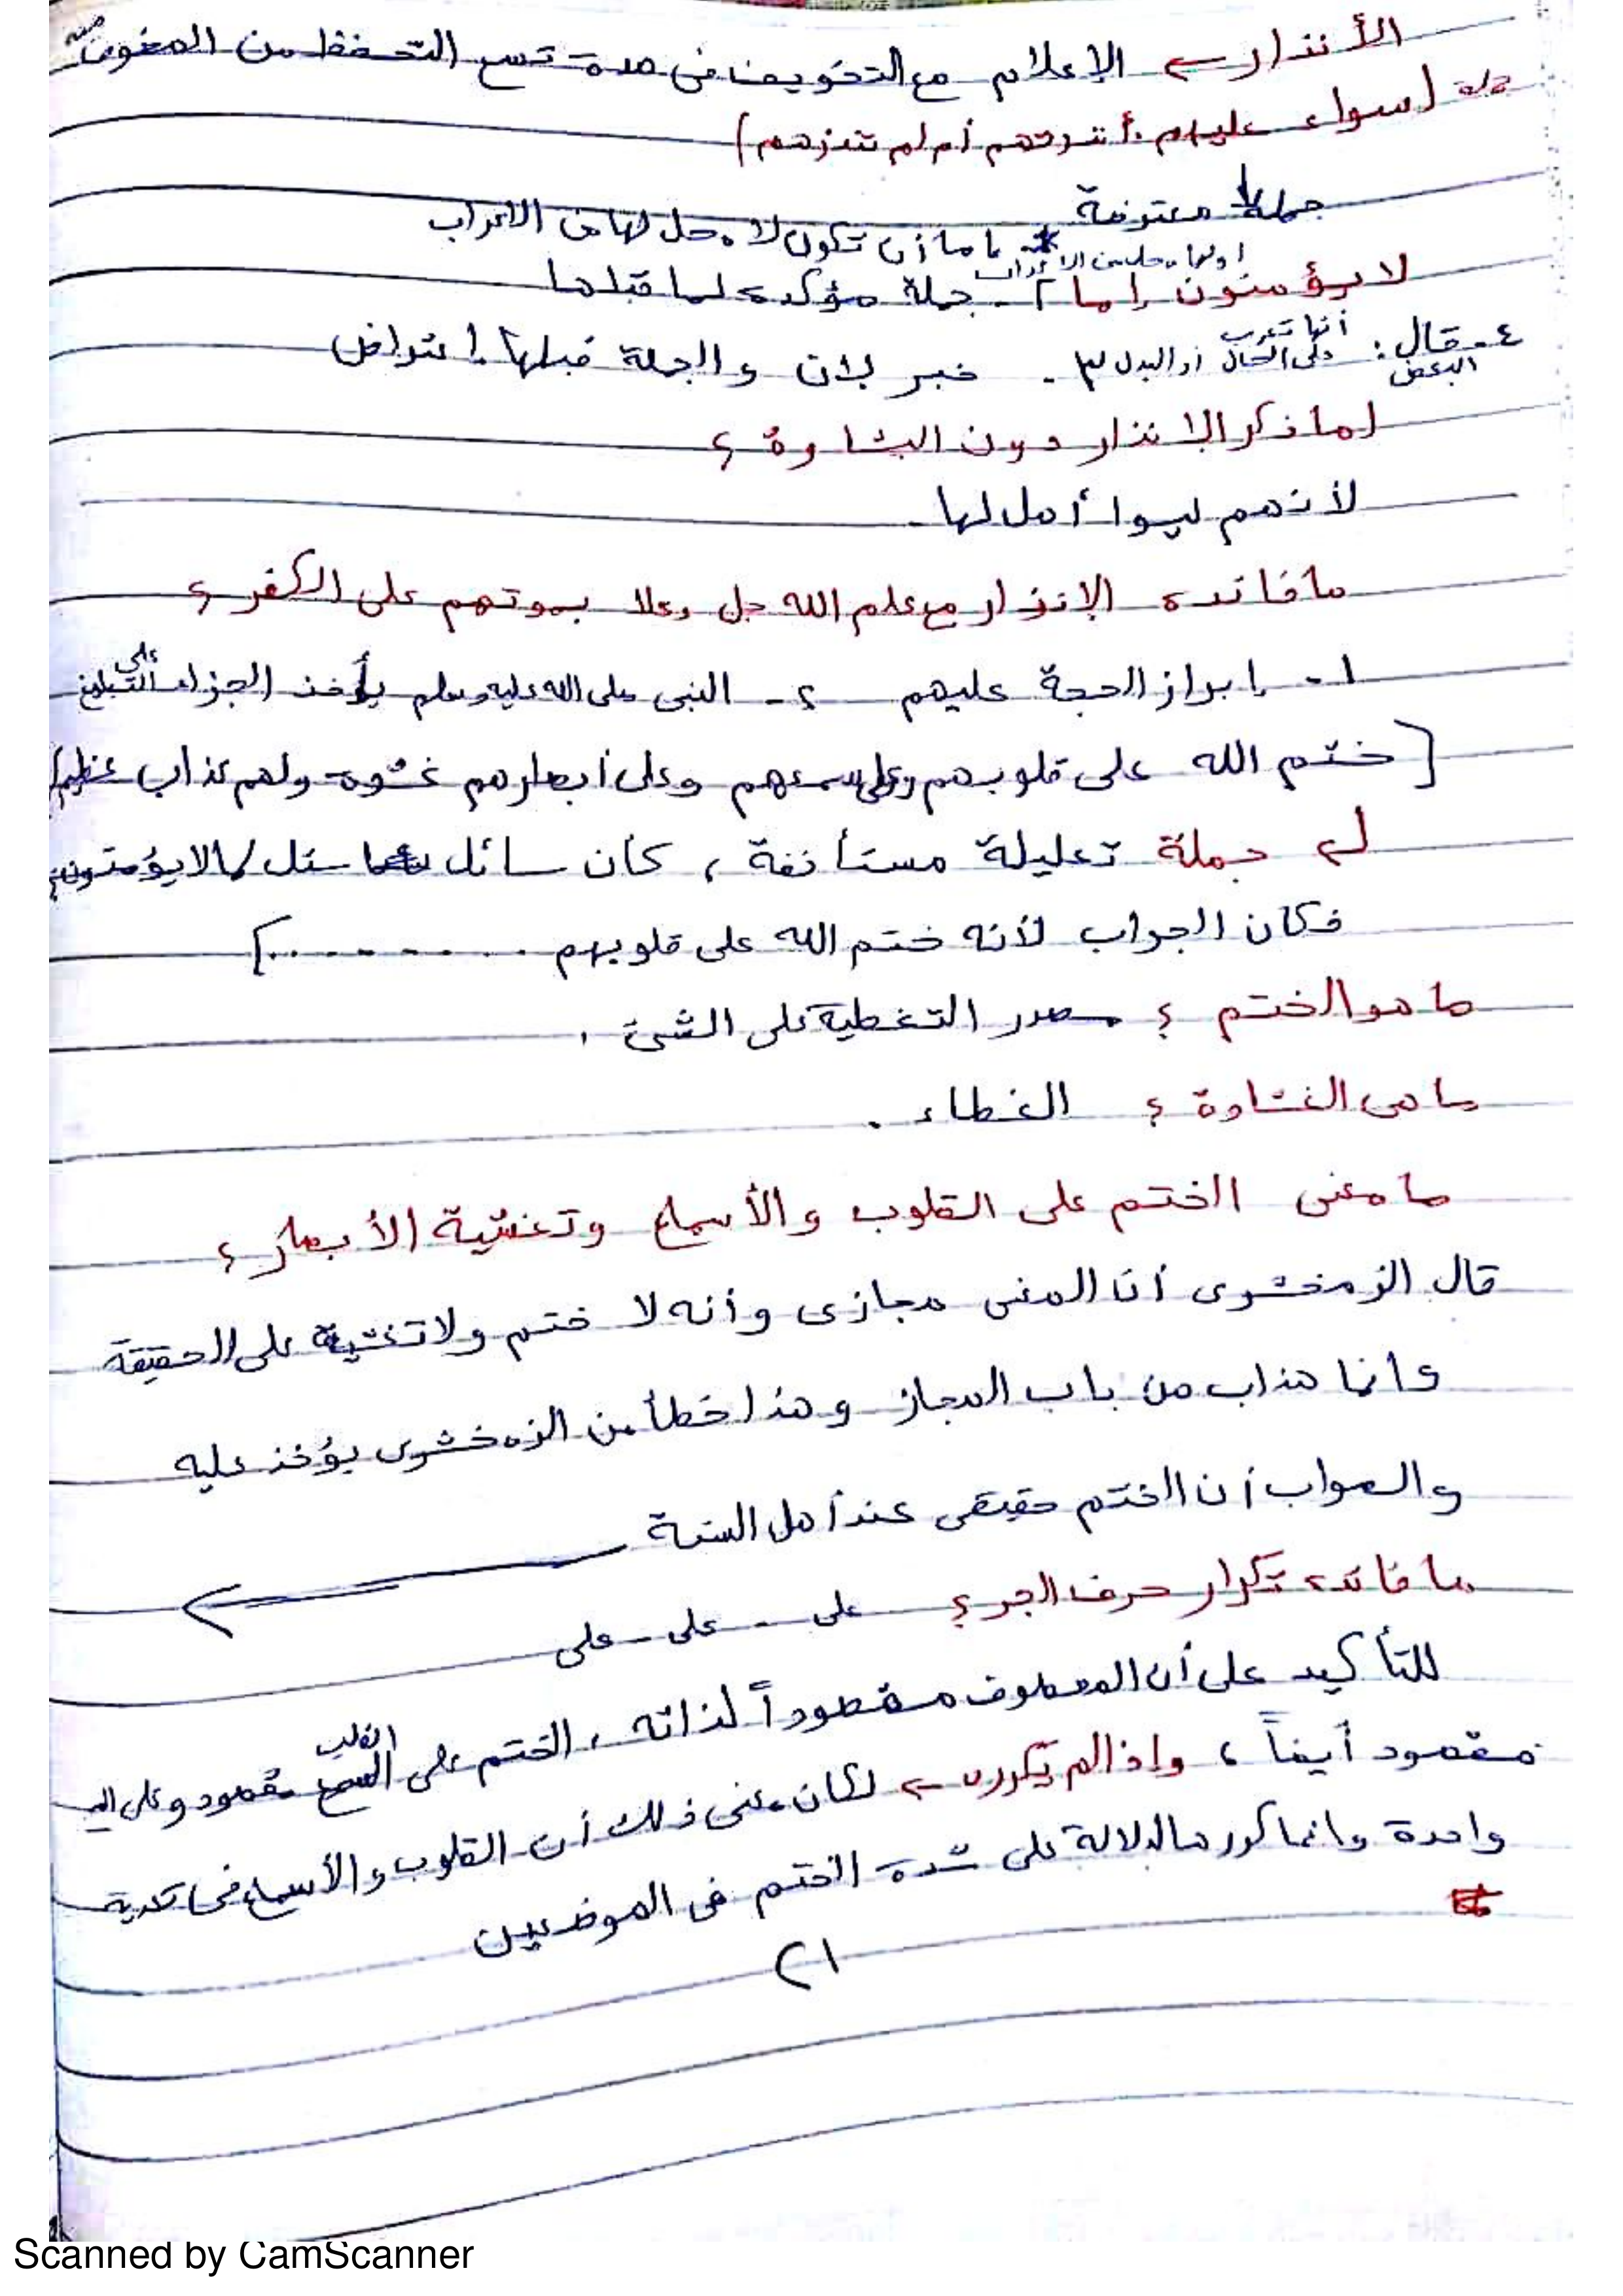 الأنذار ← الإعلام مع التخويف فى مدة تسع التحفظ من المخوف منه
جملة (سواء عليهم أأنذرتهم أم لم تنذرهم)
جملة معترضة
إما أن تكون لا محل لها من الاعراب
أو لها محل من الاعراب
لا يؤمنون إما ٢ـ جملة مؤكدة لما قبلها
٤ـ قال البعض: أنها تعرب على الحال أو البدل ٣ـ خبر لإن والجملة قبلها اعتراض
لما ذكر الإنذار دون البشارة ؟
لأنهم ليسوا أهل لها
ما فائدة الإنذار مع علم الله جل وعلا بموتهم على الكفر ؟
١ـ إبراز الحجة عليهم ٢ـ النبى صلى الله عليه وسلم يأخذ الجزاء على التبليغ
[ختم الله على قلوبهم وعلى سمعهم وعلى أبصارهم غشوة ولهم عذاب عظيم]
جملة تعليلة مستأنفة ، كأن سائل سئل لما لا يؤمنون
فكان الجواب لأنه ختم الله على قلوبهم ..........]
ما هو الختم ؟ مصدر التغطية على الشئ .
ما هى الغشاوة ؟ الغطاء .
ما معنى الختم على القلوب والأسماع وتغشية الأبصار ؟
قال الزمخشرى أن المعنى مجازى وأنه لا ختم ولا تغشية على الحقيقة
وانما هذاب من باب المجاز وهذا خطأ من الزمخشرى يؤخذ عليه
والصواب أن الختم حقيقى عند أهل السنة
ما فائدة تكرار حرف الجر ؟ على - على - على
للتأكيد على أن المعطوف مقصوداً لذاته ، الختم على القلب مقصود وعلى
مقصود أيضاً ، وإذا لم تكرره ← لكان معنى ذلك أن القلوب والأسماع فى تعدية
واحدة وانما كررها لدلالة على شدة الختم فى الموضعين
٢١
Scanned by CamScanner